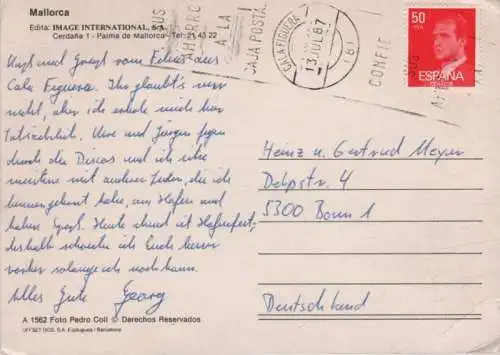 Mallorca
Edita: IMAGE INTERNATIONAL, S.A.
Cerdaña 1 - Palma de Mallorca - Tel. 21 43 22
SUS
AHORRO
A LA
CAJA POSTAL
CALA FIGUERA
13 JUL 87
CONFIE
SUS
50
PTA
ESPAÑA
CORREOS
vom Felsen aus
Cala Figuera. Ihr glaubt's
nicht, aber ich erhole mich hier
tatsächlich. Uwe und Jürgen fegen
durch die Discos und ich
meistens mit anderen die ich
kennengelernt habe, am Hafen und
haben Spaß. Heute abend ist Hafenfest,
deshalb schreibe ich Euch
vorher solange ich noch kann.
Alles Gute Georg
Heinz u. Gertrud Meyer
Delpstr. 4
5300 Bonn 1
Deutschland
A 1562 Foto Pedro Coll © Derechos Reservados